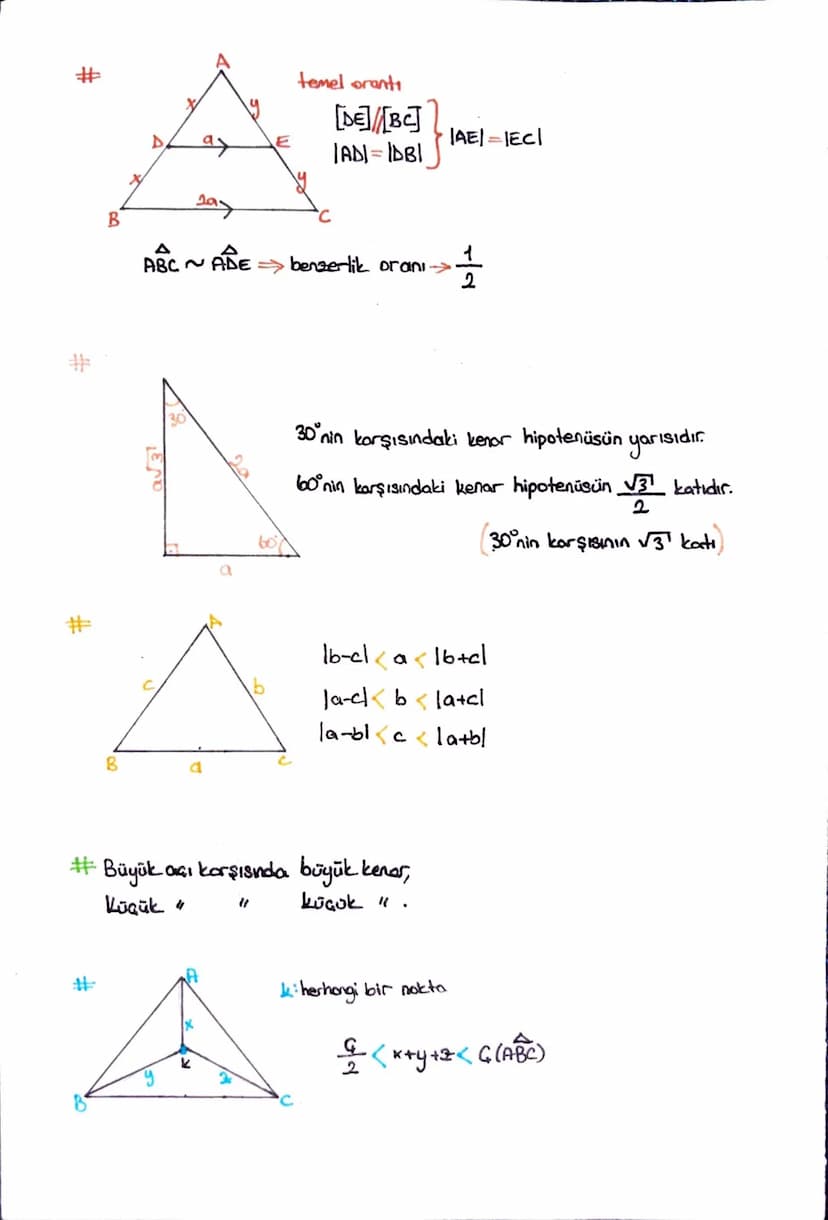 #
A
temel orantı
x
y
[DE]//[BC]
|AD|=|DB|
|AE|=|EC|
D
a
E
x
y
2a
B
C
ABC ~ ADE ⇒ benzerlik oranı → 1/2
#
30°
a√3
2a
60°
a
30°nin karşısındaki kenar hipotenüsün yarısıdır.
60°nin karşısındaki kenar hipotenüsün √3/2 katıdır.
(30°nin karşısının √3 katı)
#
A
c
b
B
a
c
|b-c| < a < |b+c|
|a-c| < b < |a+c|
|a-b| < c < |a+b|
# Büyük açı karşısında büyük kenar,
Küçük " " küçük " .
#
A
k: herhangi bir nokta
x
k
y
z
B
C
Ç/2 < x+y+z < Ç(ABC)